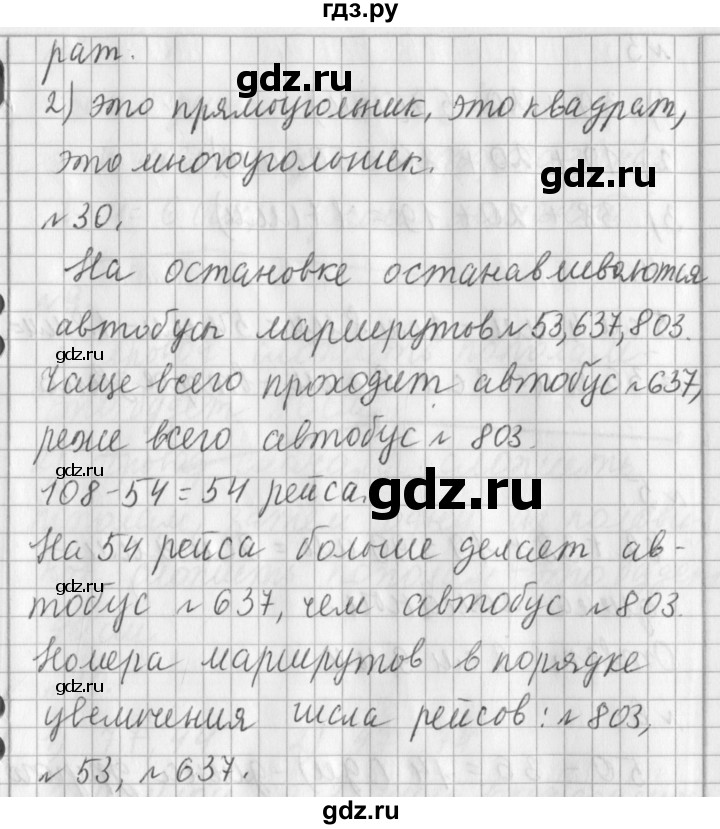 гдз.ру
рат.
gdz.ru
2) это прямоугольник, это квадрат,
это многоугольник.
gdz.ru
№30.
На остановке останавливаются
автобусы маршрутов №53,637,803.
gdz.ru
Чаще всего проходит автобус №637,
реже всего автобус № 803.
108-54=54 рейса.
gdz.ru
На 54 рейса больше делает ав-
gdz.ru
тобус №637, чем автобус №803.
Номера маршрутов в порядке
gdz.ru
увеличения числа рейсов: №803,
№53, №637.
gdz.ru